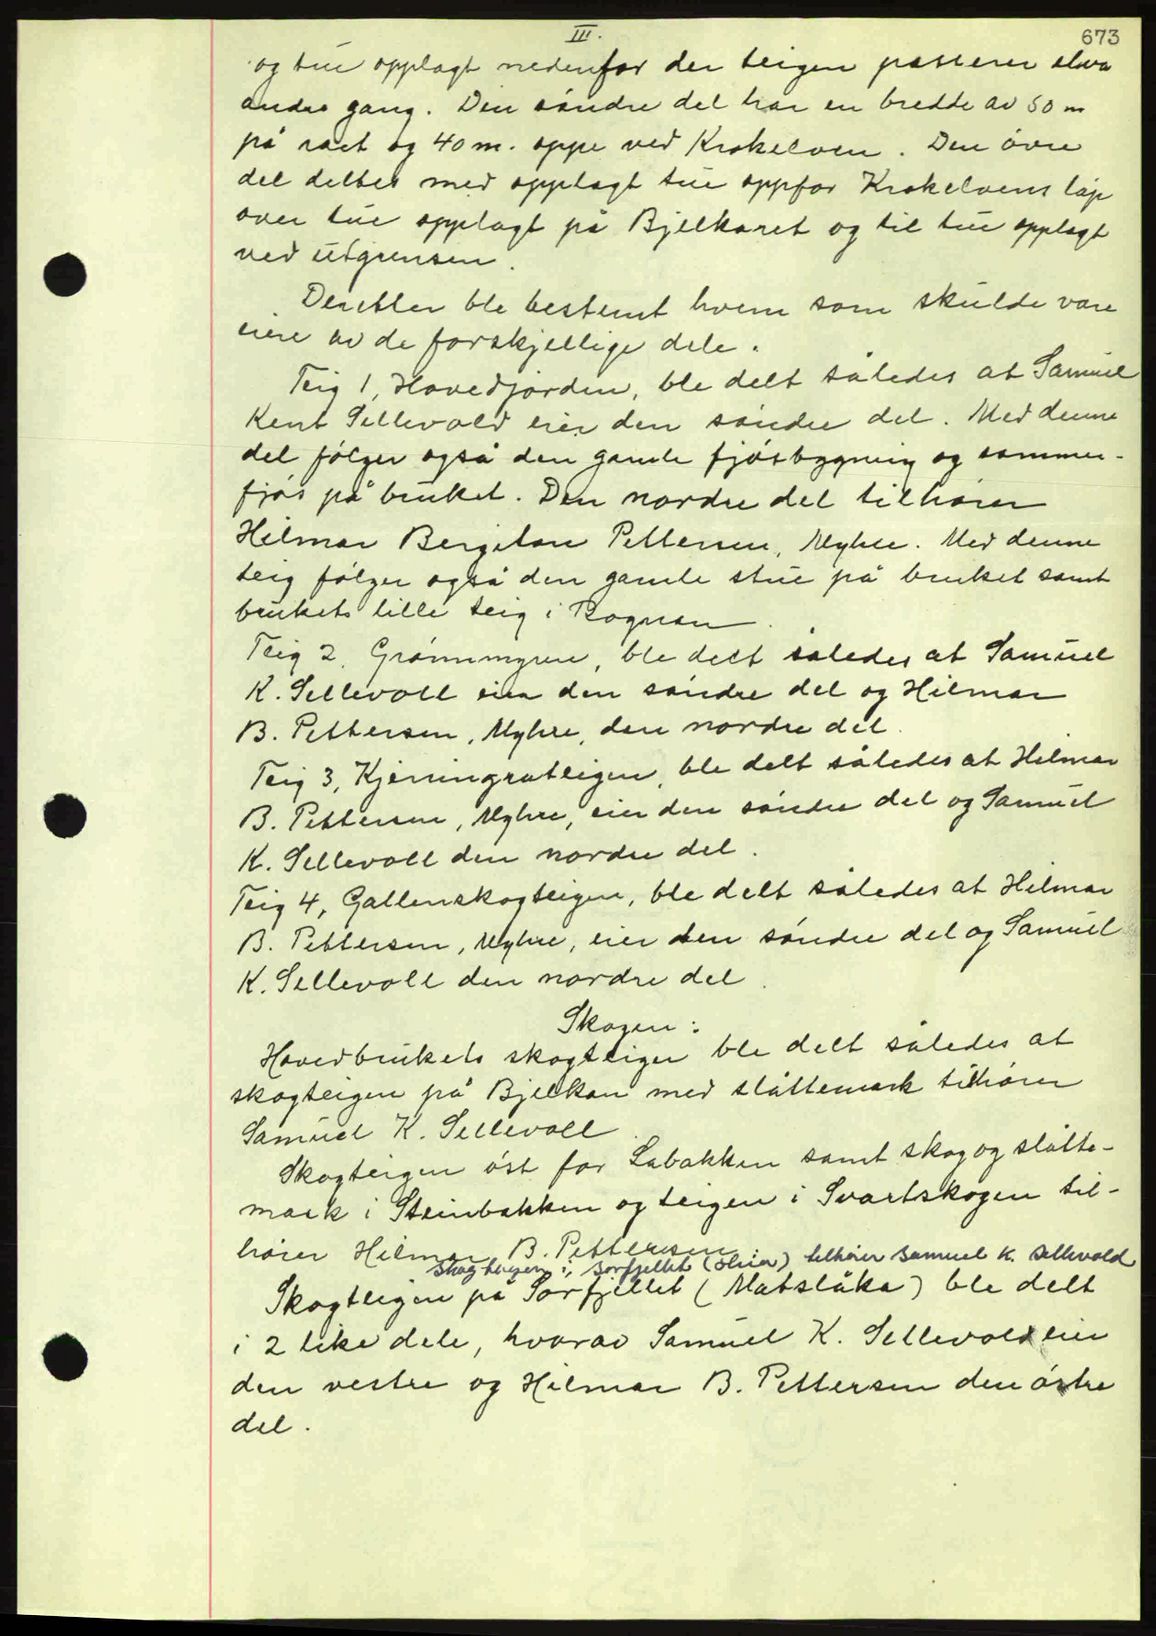 III.
673
og tue opplagt nedenfor der teigen passerer elva
andre gang. Den søndre del har en bredde av 50 m
på raet og 40 m. oppe ved Krokelven. Den øvre
del deltes med opplagt tue oppfor Krokelvens løp
over tue opplagt på Bjelkaret og til tue opplagt
ved utgrensen.
Deretter ble bestemt hvem som skulde være
eiere av de forskjellige dele.
Teig 1, Hovedjorden, ble delt således at Samuel
Kent Sellevold eier den søndre del. Med denne
del følger også den gamle fjøsbygning og sommer-
fjøs på bruket. Den nordre del tilhører
Hilmar Bergiton Pettersen, Myhre. Med denne
teig følger også den gamle stue på bruket samt
brukets lille teig i Rognan.
Teig 2, Grønnmyren, ble delt således at Samuel
K. Sellevoll eier den søndre del og Hilmar
B. Pettersen, Myhre, den nordre del.
Teig 3, Kjerringratleigen, ble delt således at Hilmar
B. Pettersen, Myhre, eier den søndre del og Samuel
K. Sellevoll den nordre del.
Teig 4, Gallenskogteigen, ble delt således at Hilmar
B. Pettersen, Myhre, eier den søndre del og Samuel
K. Sellevoll den nordre del.
Skogen:
Hovedbrukets skogteiger ble delt således at
skogteigen på Bjelkan med slåttemark tilhører
Samuel K. Sellevoll.
Skogteigen øst for Labakken samt skog og slåtte-
mark i Steinbakken og teigen i Svartskogen til-
hører Hilmar B. Pettersen.
Skogteigen i Sørfjellet (Øheia) tilhører Samuel K. Sellevold
Skogteigen på Sørfjellet (Matslåka) ble delt
i 2 like dele, hvorav Samuel K. Sellevold eier
den vestre og Hilmar B. Pettersen den østre
del.